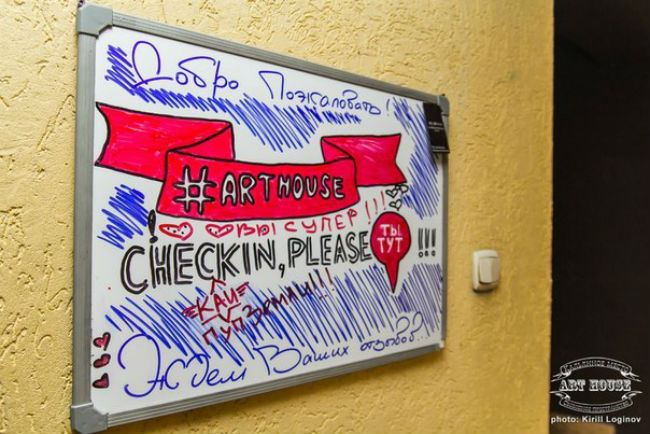 Добро Пожаловать!
#ARTHOUSE
ВЫ СУПЕР!!!
!CHECKIN, PLEASE !!!
ТЫ
ТУТ
=КАИ=
ПУП ЗЕМЛИ!!!
Ждем Ваших отзывов!..
ART HOUSE
photo: Kirill Loginov